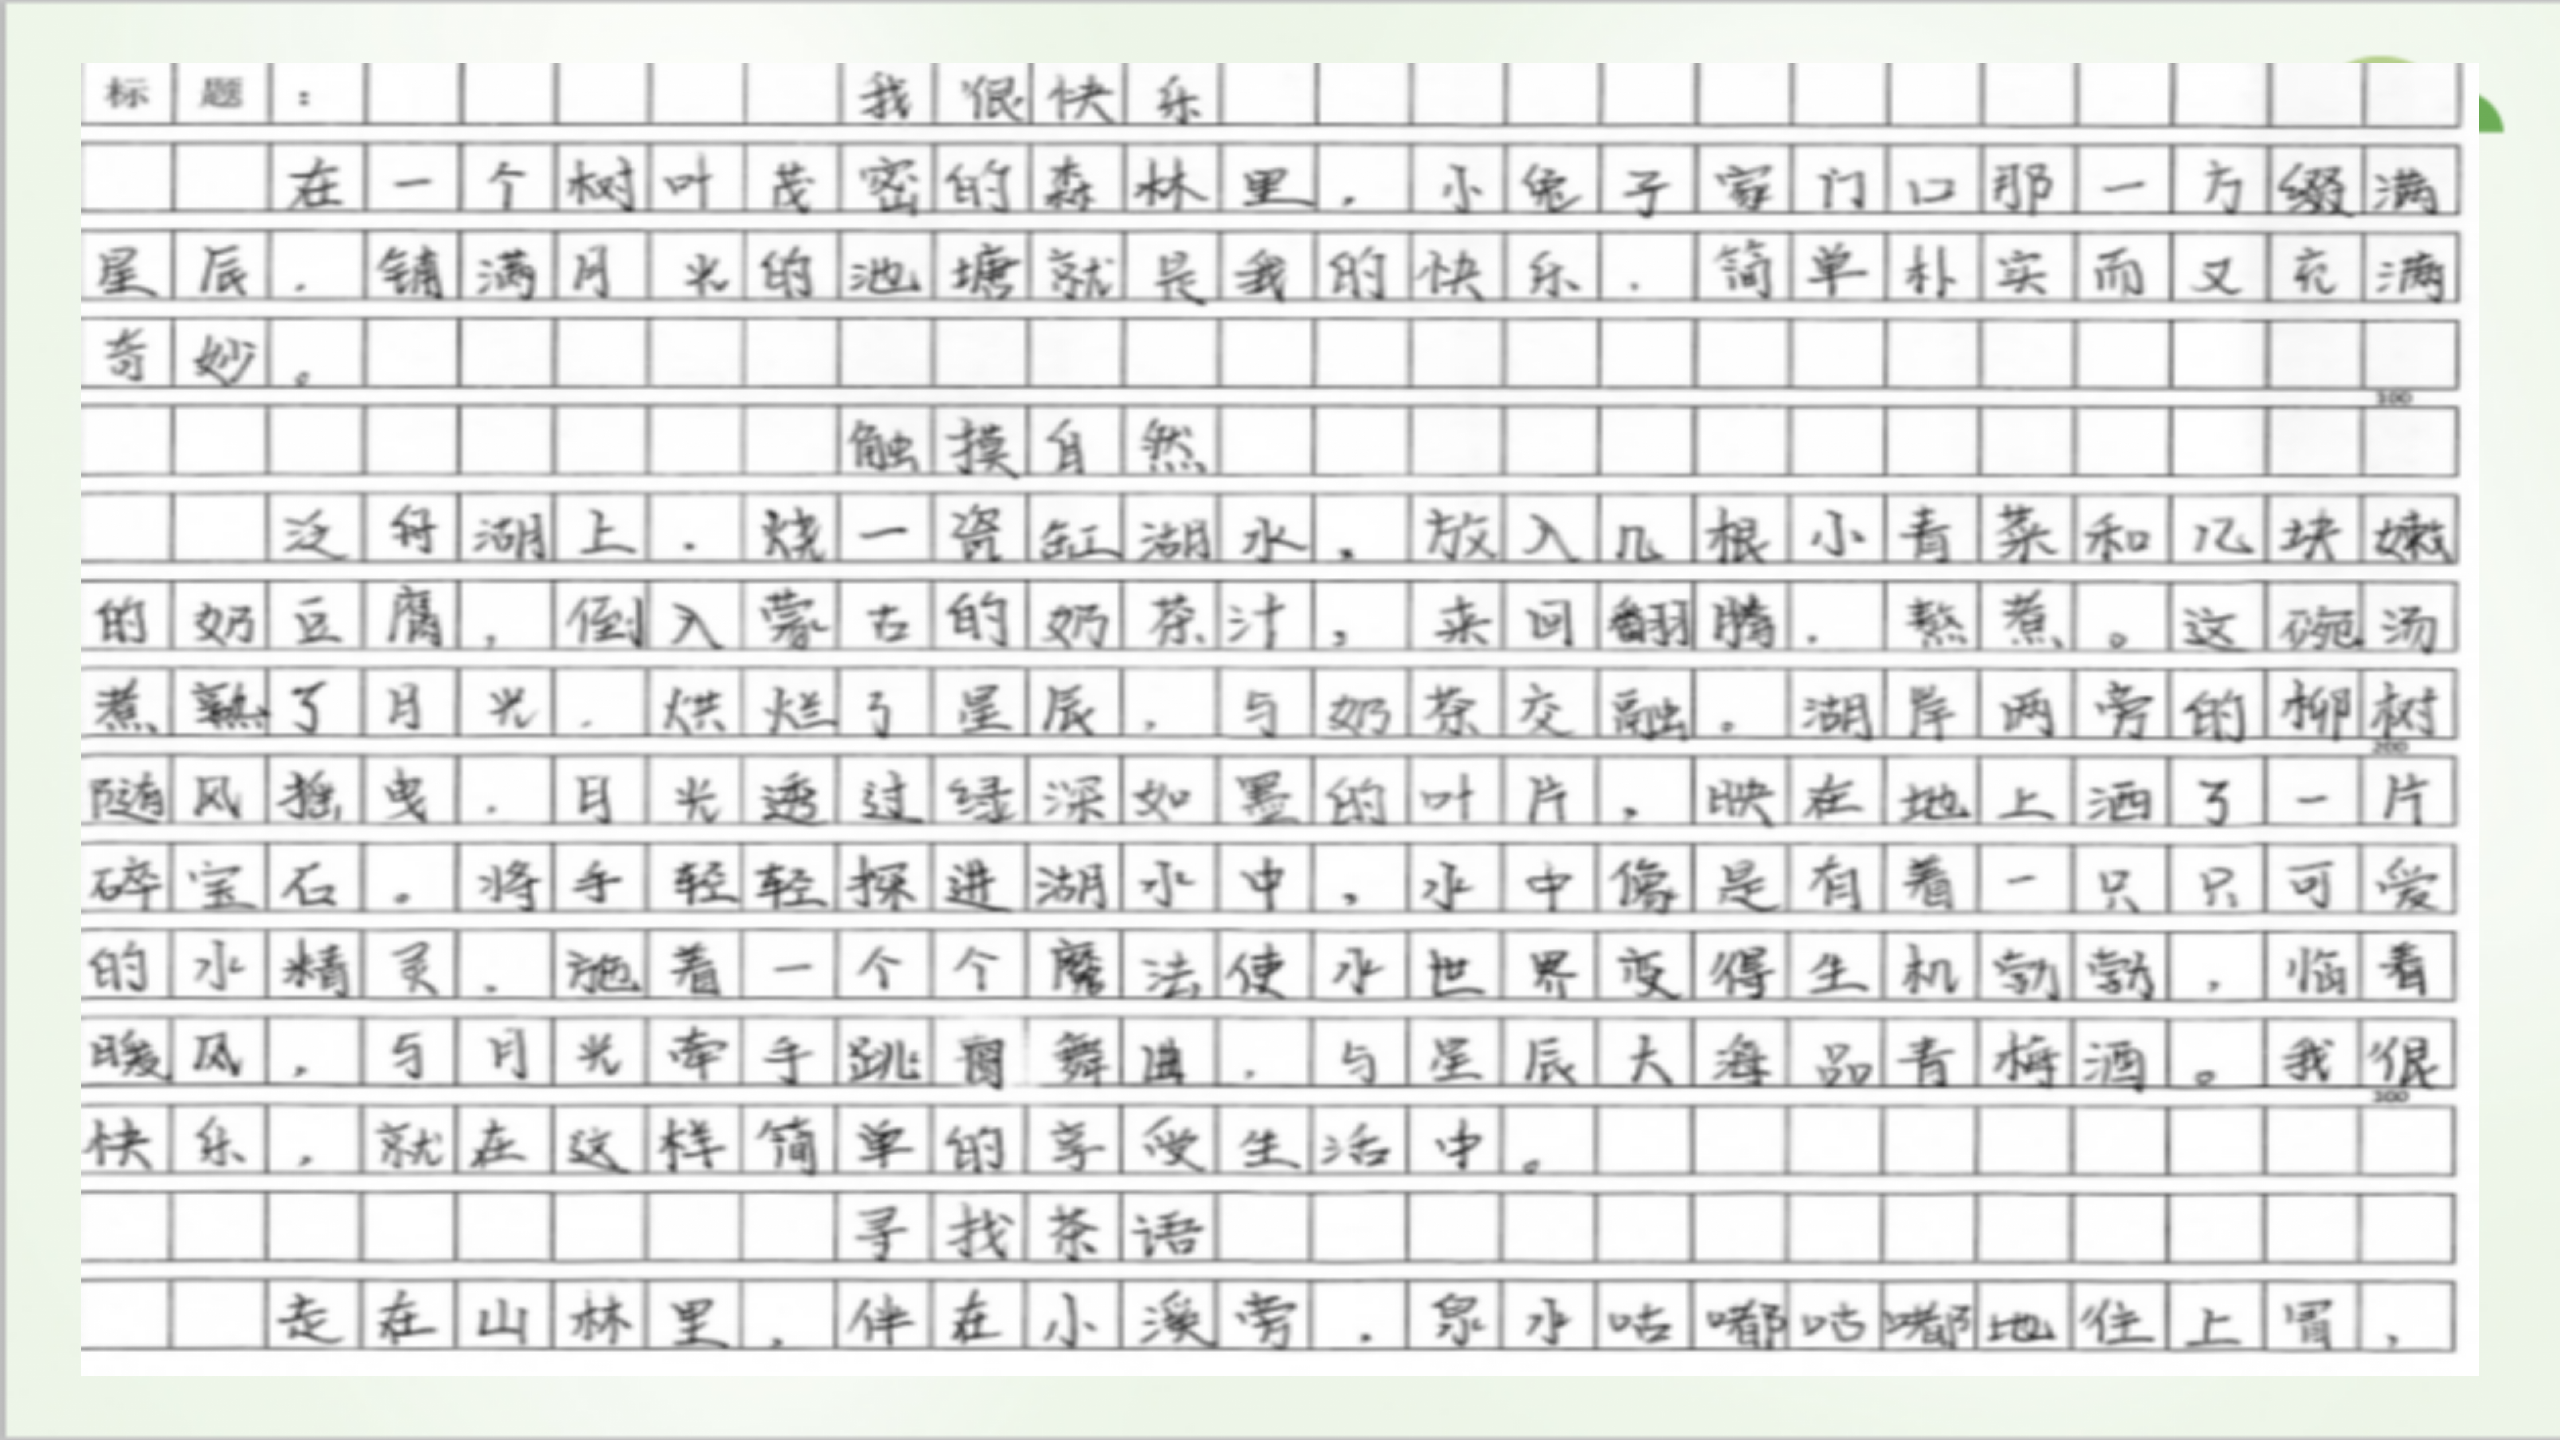 标题： 我很快乐
在一个树叶茂密的森林里，小兔子家门口那一方缀满
星辰，铺满月光的池塘就是我的快乐，简单朴实而又充满
奇妙。
100
触摸自然
泛舟湖上，烧一瓷缸湖水，放入几根小青菜和几块嫩
的奶豆腐，倒入蒙古的奶茶汁，来回翻腾，熬煮。这碗汤
煮熟了月光，烘烂了星辰，与奶茶交融。湖岸两旁的柳树
200
随风摇曳，日光透过绿深如墨的叶片，映在地上洒了一片
碎宝石。将手轻轻探进湖水中，水中像是有着一只只可爱
的水精灵，施着一个个魔法使水世界变得生机勃勃，临着
暖风，与月光牵手跳首舞曲，与星辰大海品青梅酒。我很
300
快乐，就在这样简单的享受生活中。
寻找茶语
走在山林里，伴在小溪旁，泉水咕嘟咕嘟地往上冒，